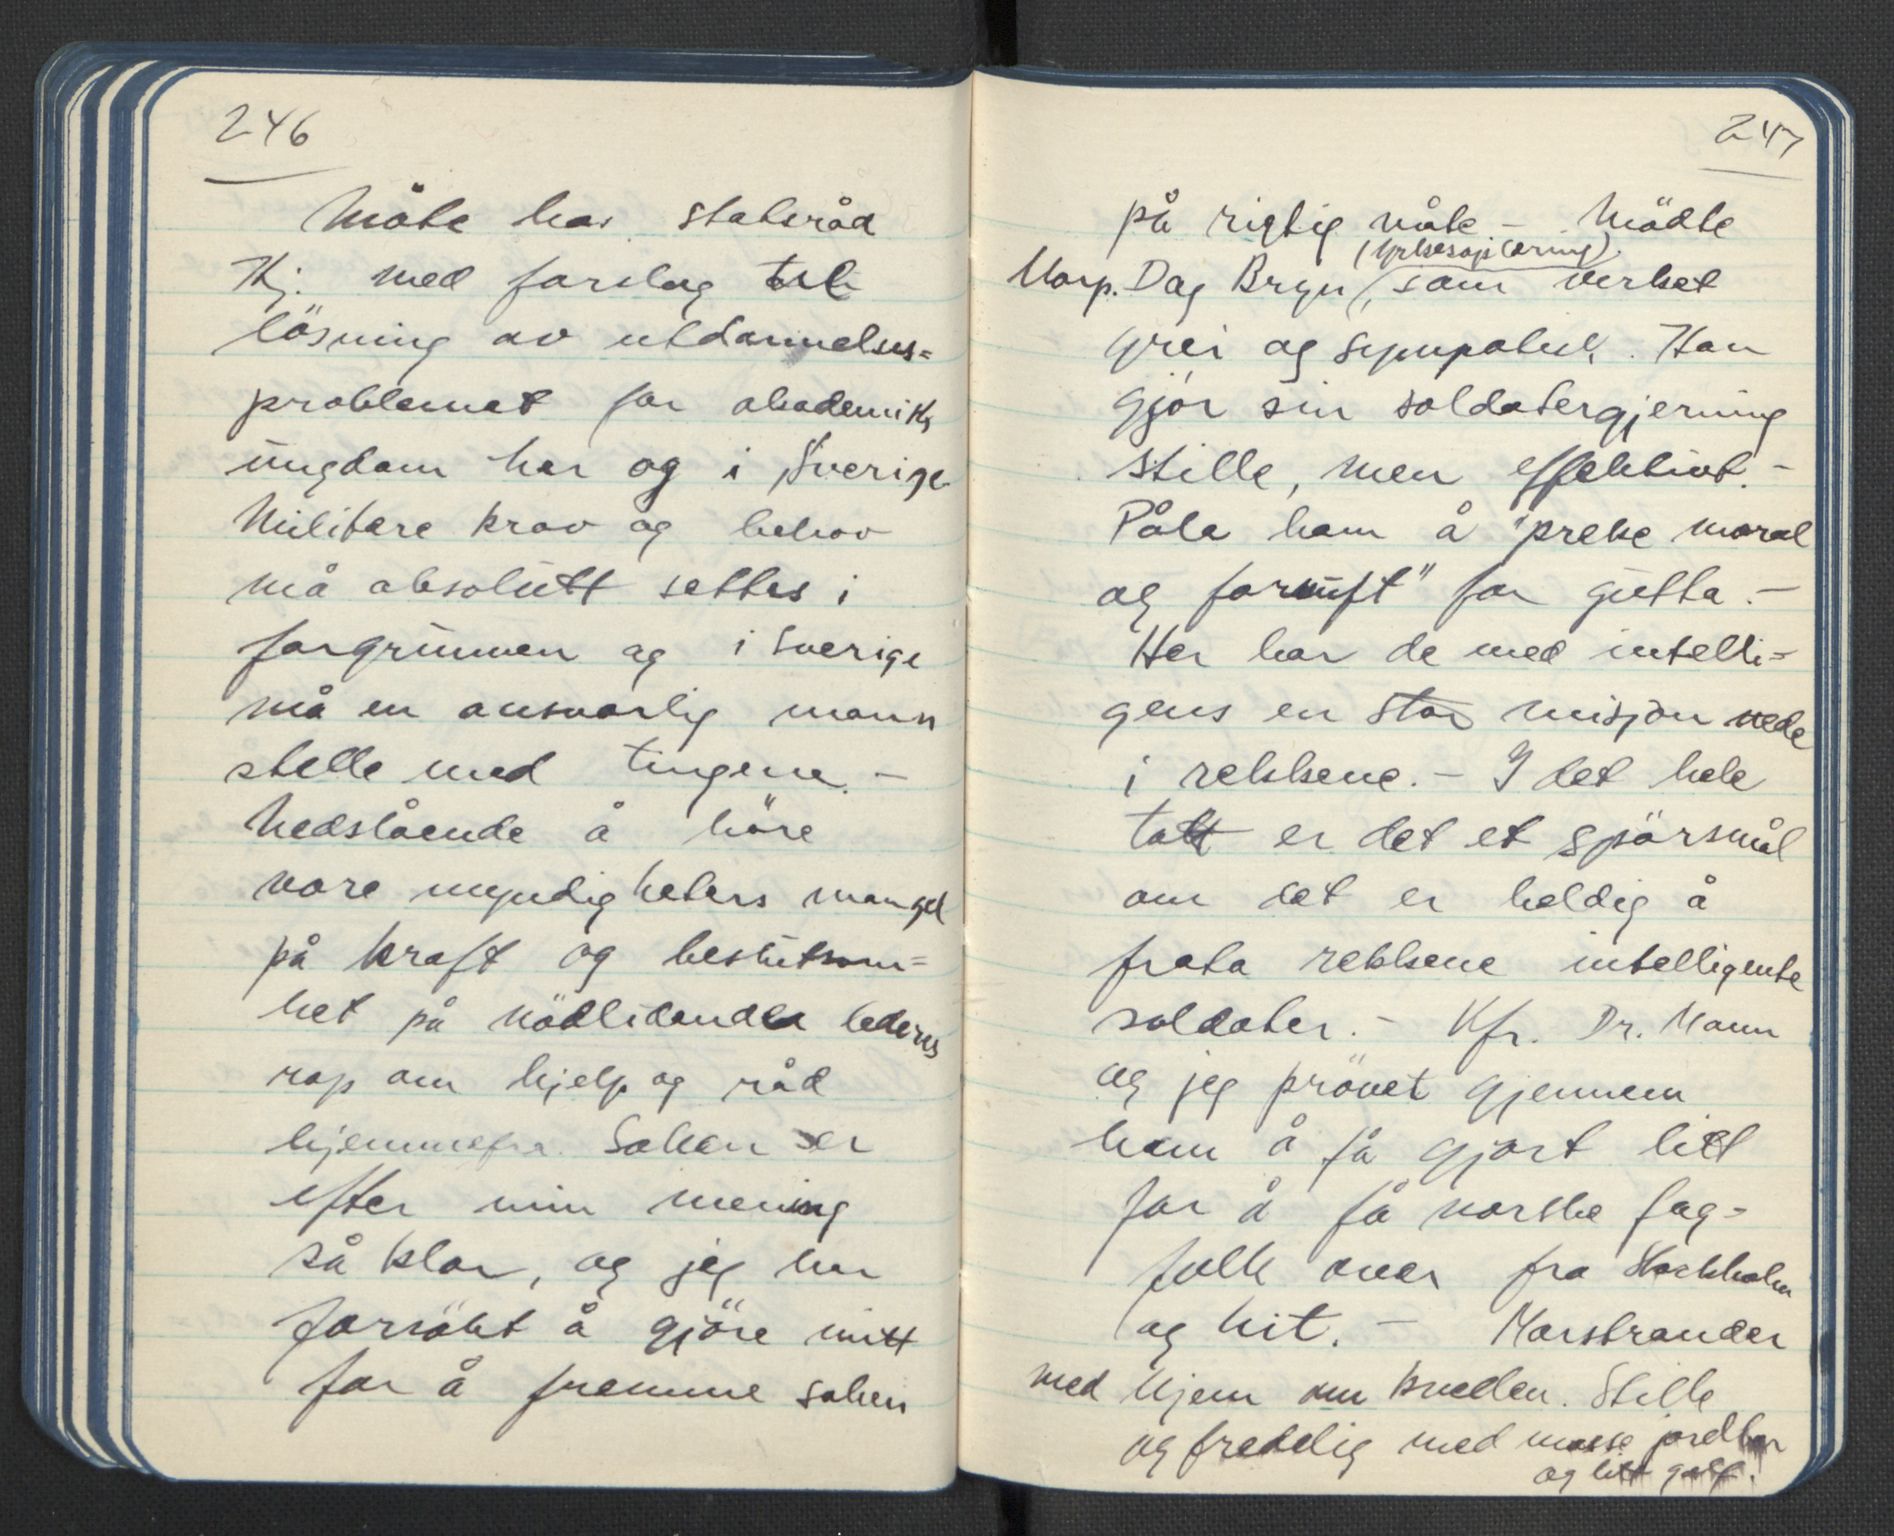 246
Måte hos statsråd
Hj. med forslag til
lösning av utdannelses=
problemet for akademisk
ungdom her og i Sverige
Militære krav og behov
må absolutt settes i
forgrunnen og i Sverige
må en ansvarlig mann
stelle med tingene. -
Nedslående å höre
våre myndigheters mangel
på kraft og beslutsom=
het på nödlidende lederes
rop om hjelp og råd
hjemmefra. Saken er
efter min mening
så klar, og jeg har
forsökt å gjöre mitt
for å fremme saken
247
på rigtig måte. - Mödte
(Yrkesoplæring)
Marp. Dag Bryn, som virket
grei og sympatisk. Han
gjör sin soldatergjerning
stille, men effektivt. -
Påla ham å "preke moral
og fornuft" for gutta. -
Her har de med intelli=
gens en stor misjon nede
i rekkene. - I det hele
tatt er det et spörsmål
om det er heldig å
frata rekkene intelligente
soldater. - Kfr. Dr. Mann
og jeg prövet gjennem
ham å få gjort litt
for å få norske fag=
folk over fra Stockholm
og hit. - Marstrander
med hjem om kvelden. Stille
og fredelig med masse jordbær
og litt golf.